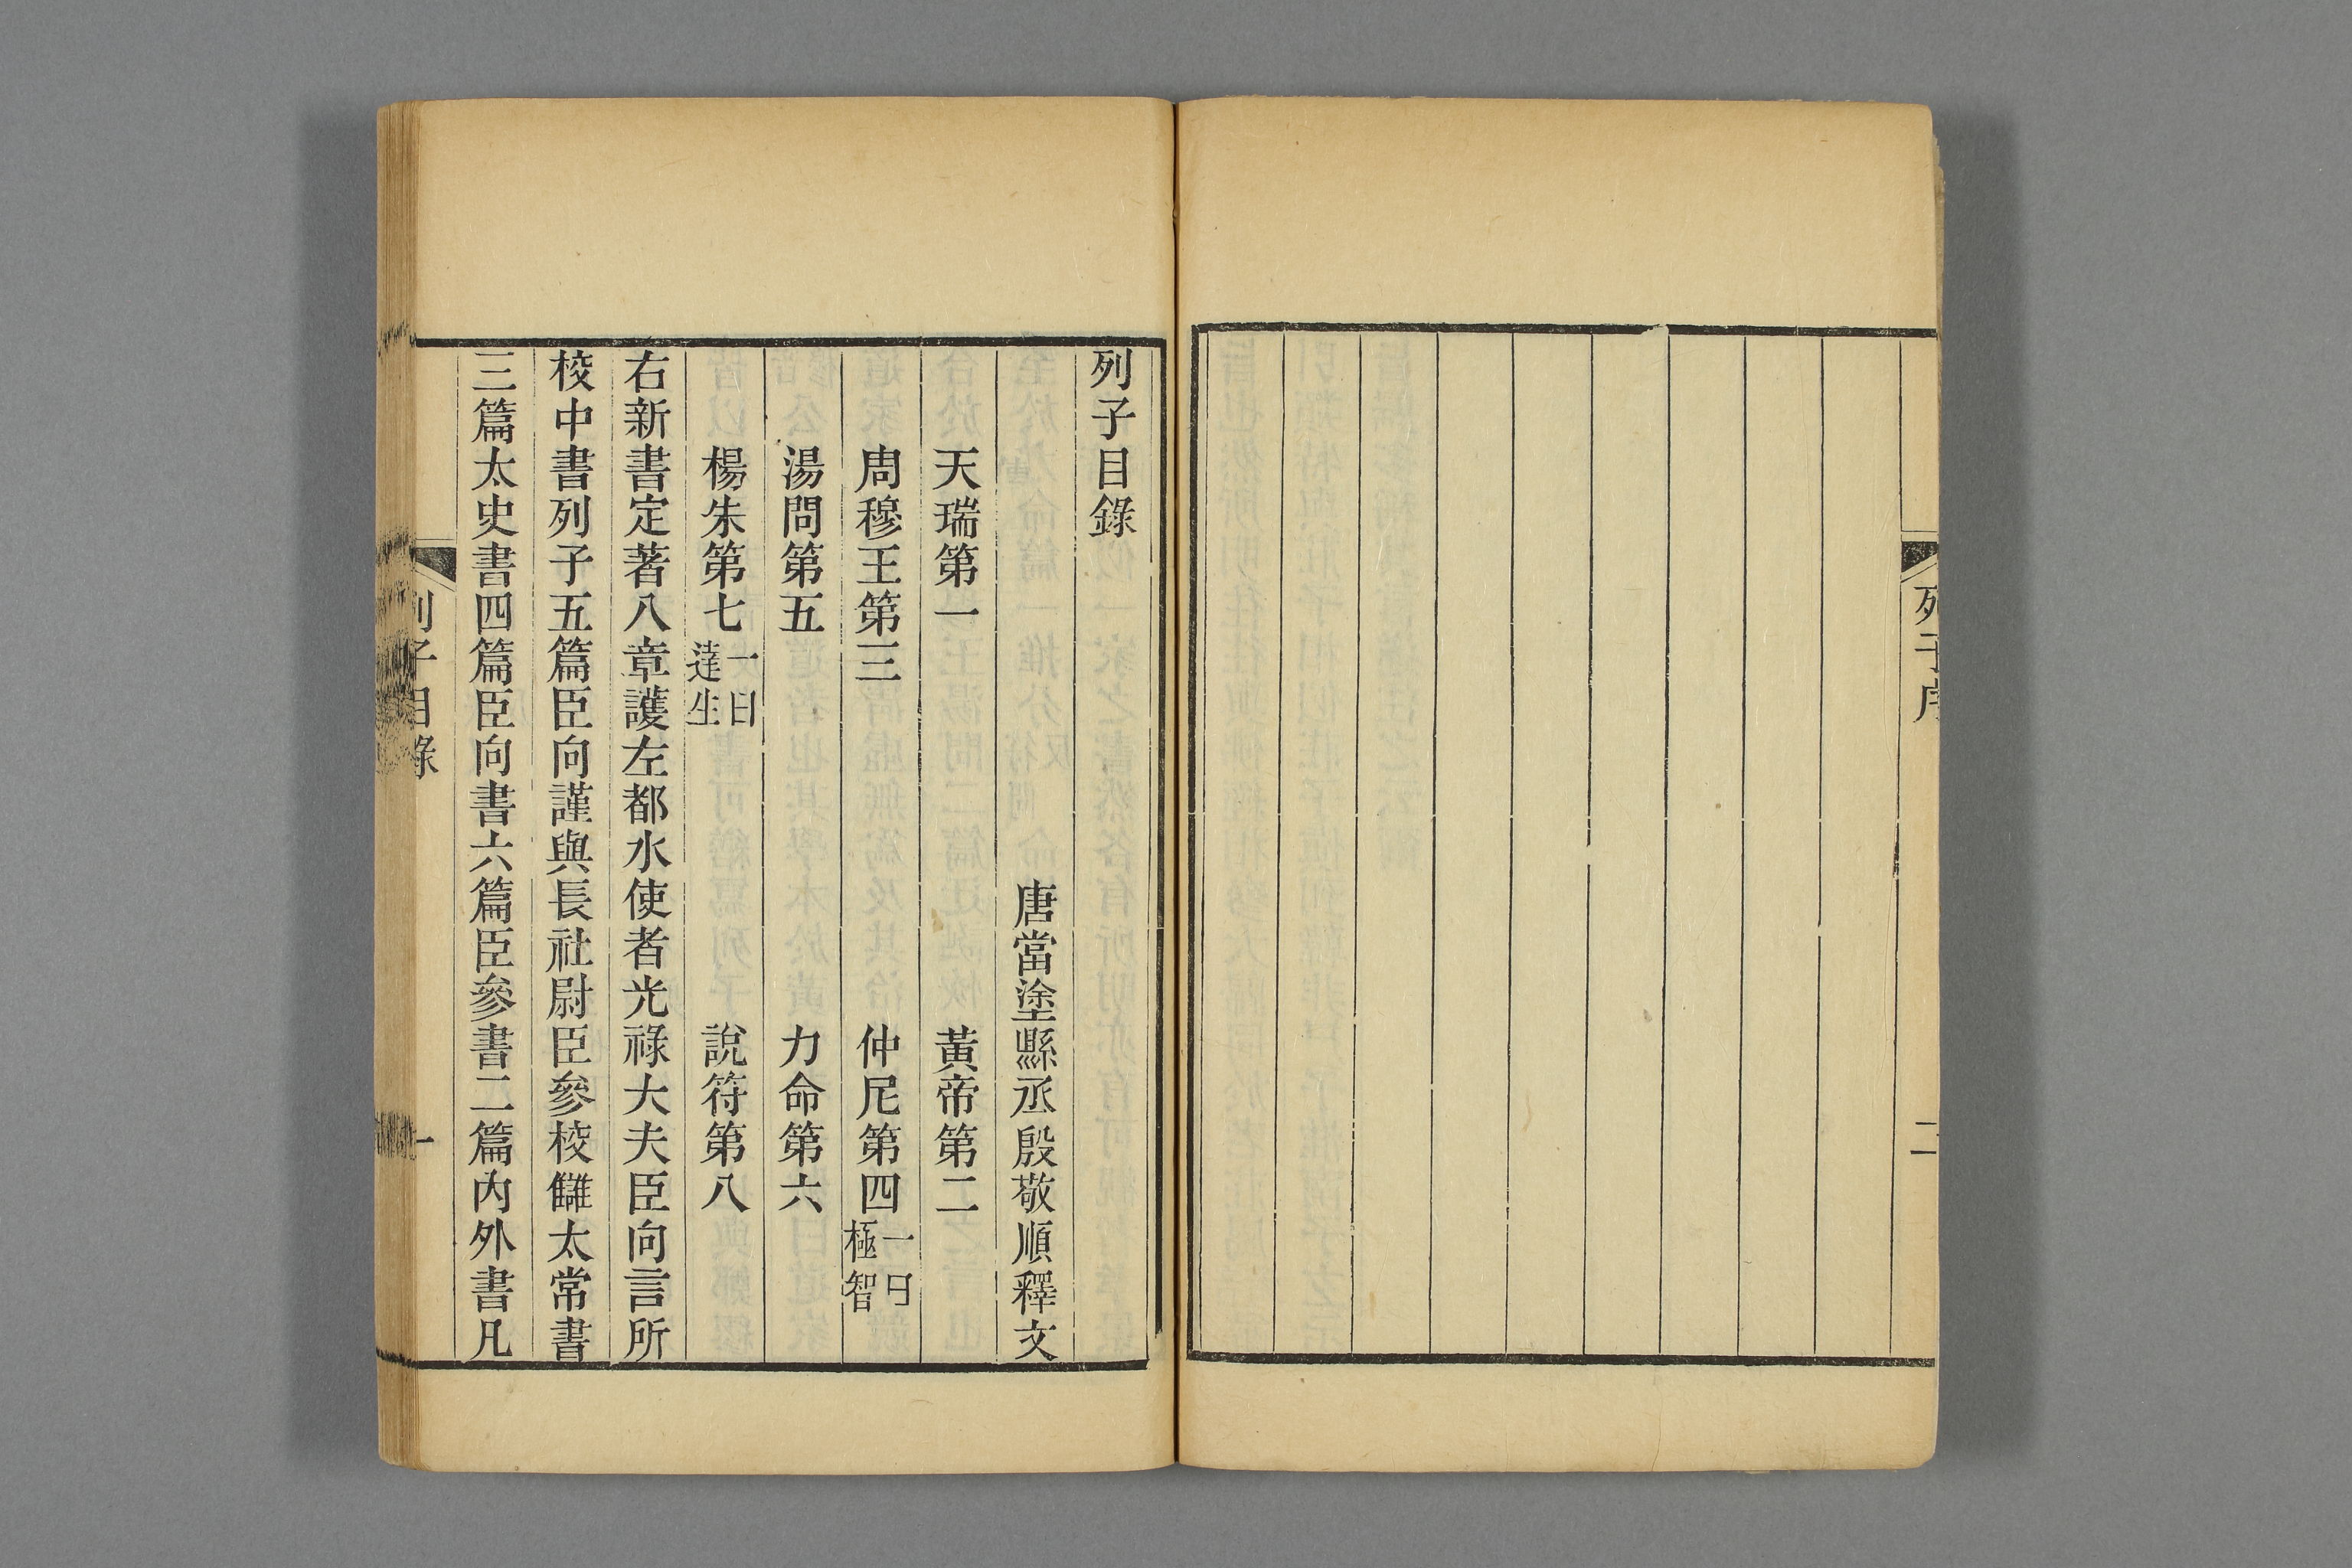 列子序
二
列子目錄
唐當塗縣丞殷敬順釋文
天瑞第一　黃帝第二
周穆王第三　仲尼第四 一曰極智
湯問第五　力命第六
楊朱第七 一曰達生　說符第八
右新書定著八章護左都水使者光祿大夫臣向言所
校中書列子五篇臣向謹與長社尉臣參校讎太常書
三篇太史書四篇臣向書六篇臣參書二篇內外書凡
列子目錄
一